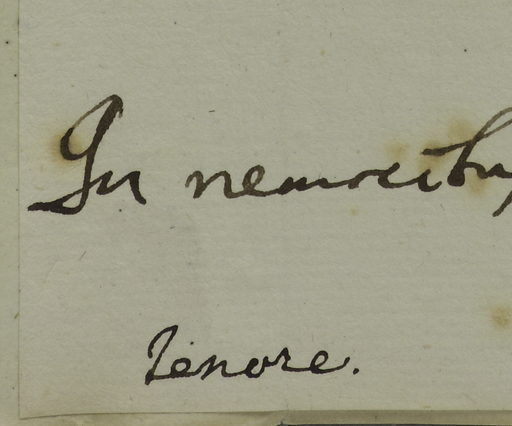 In nemoribus
Tenore.